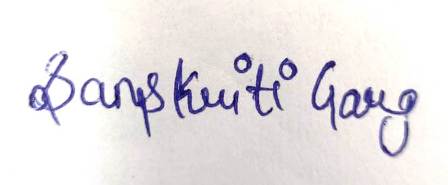 Sanskriti Garg